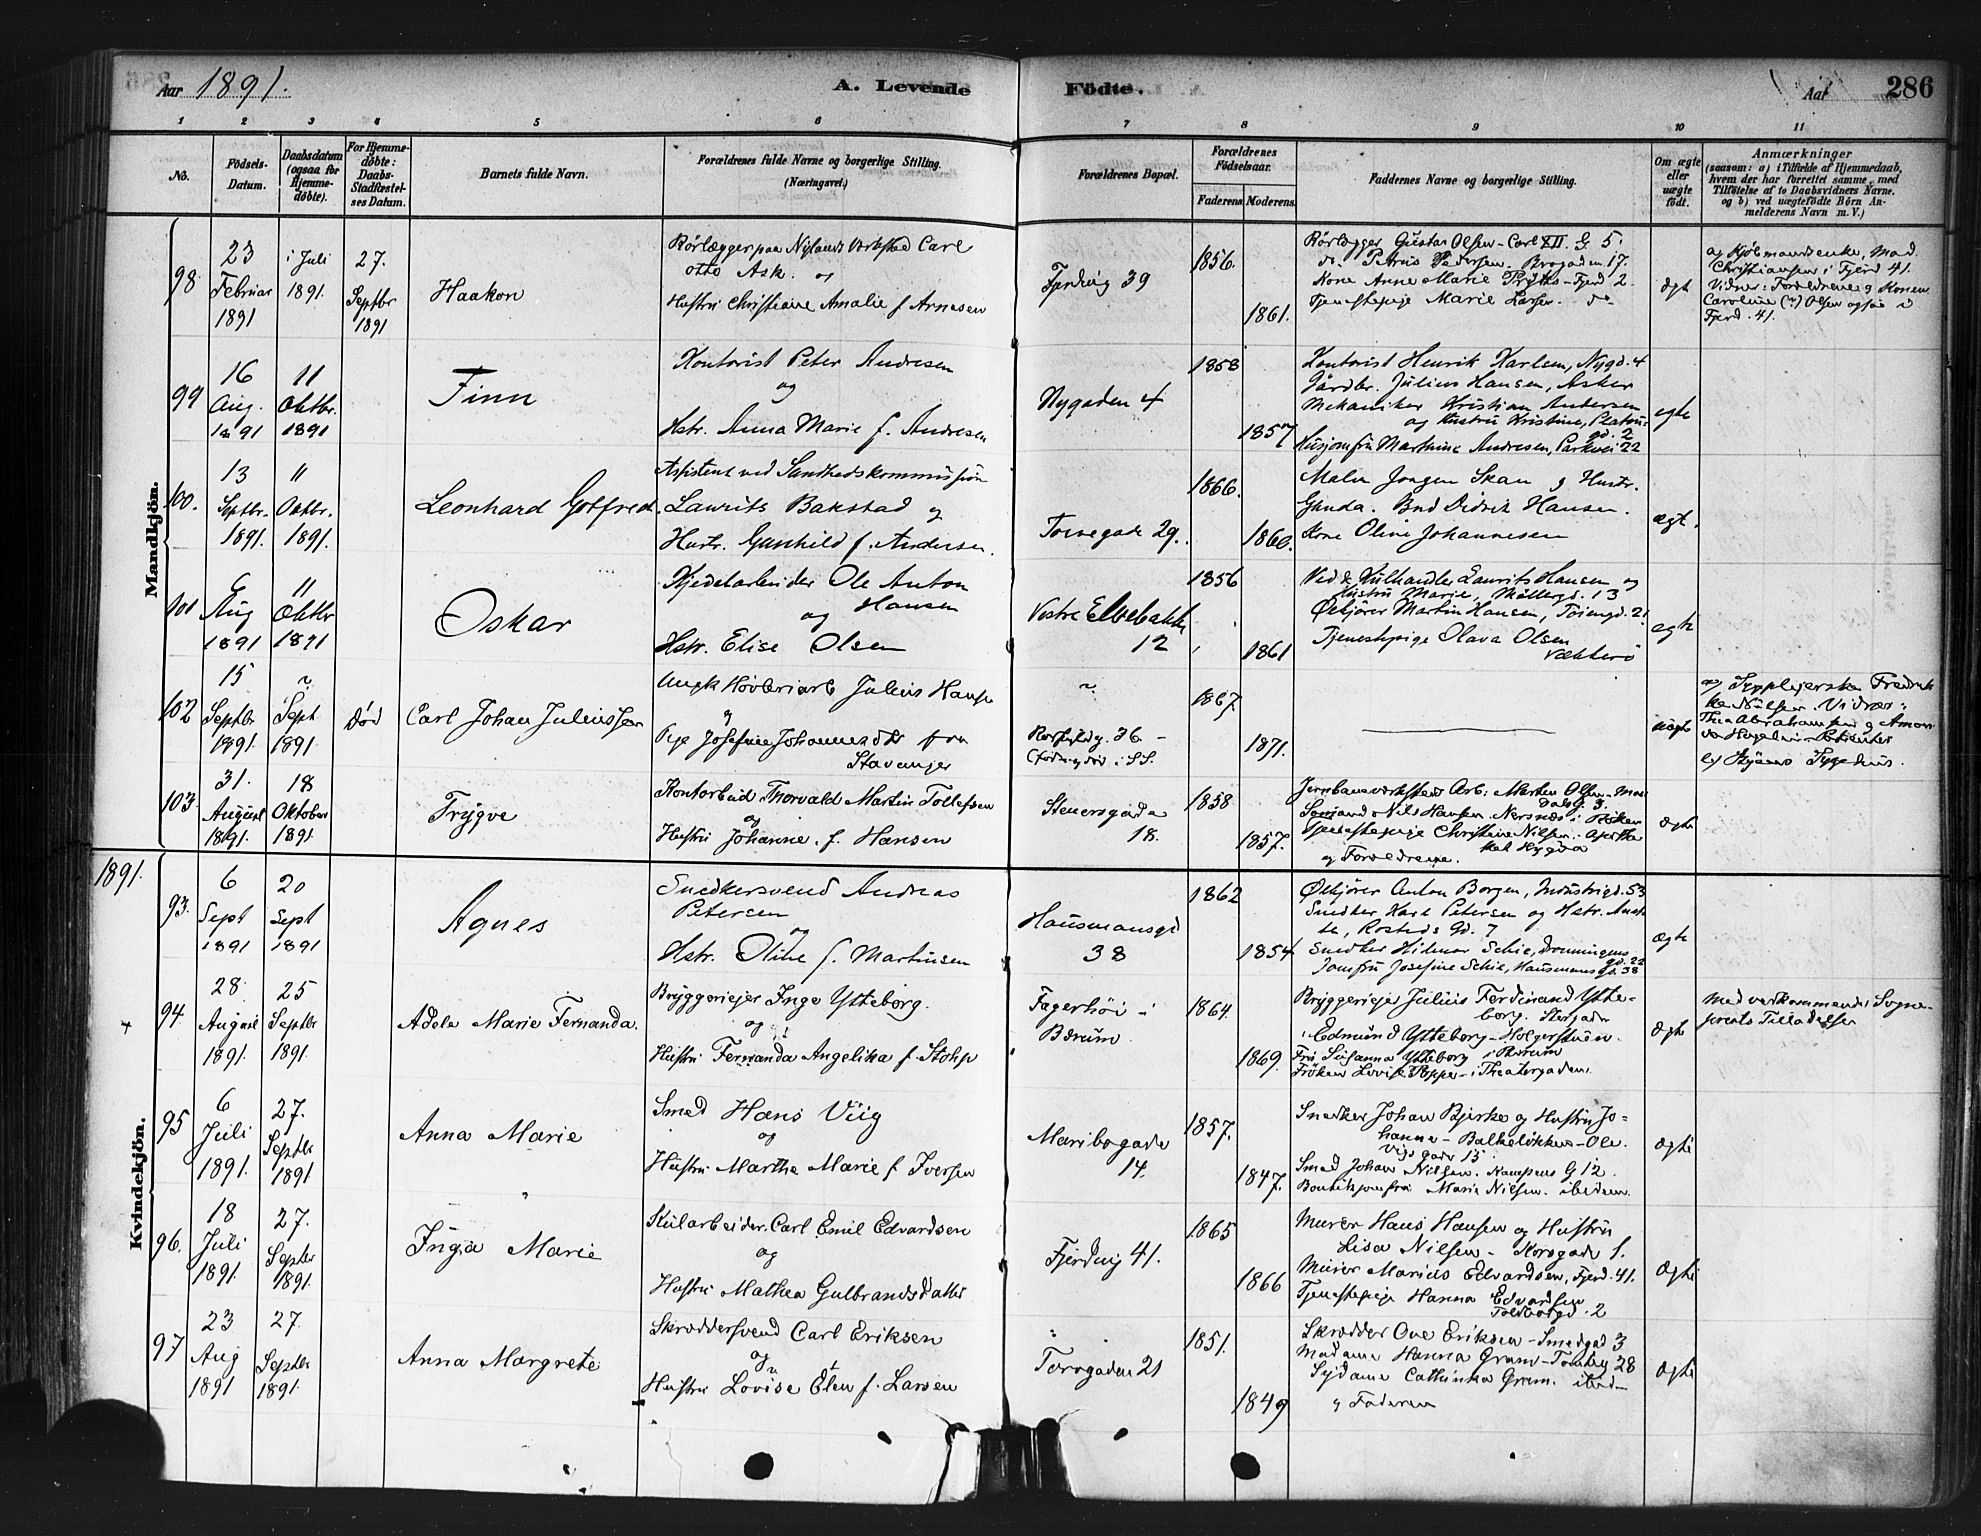 Aar 1891.
A. Levende Födte.
Aar
286
1 2 3 4 5 6 7 8 9 10 11
No.
Födsels-Datum.
Daabsdatum (ogsaa for Hjemme-döbte).
For Hjemme-döbte: Daabs-Stadfæstel-ses Datum.
Barnets fulde Navn.
Forældrenes fulde Navne og borgerlige Stilling.
(Næringsvei.)
Forældrenes Bopæl.
Forældrenes Födselsaar.
Faderens. Moderens.
Faddernes Navne og borgerlige Stilling.
Om ægte eller uægte födt.
Anmærkninger
(saasom: a) i Tilfælde af Hjemmedaab,
hvem der har forrettet samme, med
Tilföielse af to Daabsvidners Navne.
og b) ved uægtefödte Börn An-
melderens Navn m. V.)
Mandkjön.
98.
23 Februar 1891
i Juli 1891.
27. Septbr 1891
Haakon
Rörlægger paa Nylands Verksted Carl
Otto Ask. og
Hustru Christiane Amalie f. Arnesen
Fjerding 39
1856.
1861.
Rörlægger Gustav Olsen - Carl XII. G. 5.
do. Petrus Pedersen. Brogaden 17.
Kone Anne Marie - Fjerd 2.
Tjenestepige Marie Larsen. do
ægt
a) Kjöbmandsenke, Mad.
Christiansen i Fjerd 41.
Vidner: Forældrene og Konen
Caroline (?) Olsen ogsaa i
Fjerd. 41.
99
16 Aug. 1891
11 Oktbr. 1891
Finn
Kontorist Peter Andresen
og
Hstr. Anna Marie f. Andresen
Nygaden 4
1858
1857
Kontorist Henrik Karlsen, Nygd. 4
Gårdbr. Julius Hansen, Asker
Mekaniker Kristian Andersen
og Hustru Kristine, Platous
gd. 2
Husjomfru Martine Andresen, Parkvei 22
egte
100.
13 Septbr. 1891.
11 Oktbr. 1891.
Leonhard Gotfred.
Assistent ved Sundhedskommission
Laurits Bakstad og
Hustr. Gunhild f. Andersen.
Torvegade 29.
1866.
1860.
Maler Jörgen Skau og Hustr.
Gunda. Bud Didrik Hansen.
Kone Oline Johannesen
ægt.
101
6 Aug 1891
11 Oktbr 1891
Oskar
Kjedelarbeider Ole Anton
Hansen
og
Hstr. Elise Olsen
Vestre Elvebakke
12
1856
1861
Ved & Kulhandler Laurits Hansen og
Hustru Marie, Möllergd. 13
Ölkjörer Martin Hansen, Töiengd. 21
Tjenestepige Olava Olsen
Vækkerö
egte
102
15 Septbr 1891.
Sept 1891.
Död
Carl Johan Juliussen
Ungk Hövleriarb Julius Hansen
og
Pige Josefine Johannesdtr fra
Stavanger
36 -
1867.
1871.
uægte
a) Syerske Fredrik-
ke Nilsen. Vidner:
Thea Abrahamsen og
103.
31. August 1891.
18 Oktober 1891.
Trygve
Kontorbud Thorvald Martin Tollefsen
og
Hustru Johanne f. Hansen
Steensgade
18.
1858
1857.
Jernbaneverksteds Arb. Morten Olsen. Mos
Dalsg. 3.
Sömand Nils Hansen, Nersnes i Röken
Tjenestepige Christine Nilsen.
og Forældrene.
ægte
1891.
Kvindekjön.
93.
6 Sept 1891
20 Sept 1891
Agnes
Snedkersvend Andreas
Petersen
og
Hstr. Oline f. Martinsen
Hausmansgd
38
1862
1854
Ölkjörer Anton Borgen, Industrigd. 53
Snedker Karl Petersen og Hstr. Anet-
te, Rosteds Gd. 7
Snedker Hilmar Schie, Dronningens
gd. 22
Jomfru Josefine Schie, Hausmans gd. 38
Ægte
94.
28. August 1891.
25 Septbr 1891.
Adele Marie Fernanda.
Bryggerieier Inge Ytteborg.
og
Hustru Fernanda Angelika f. Stohp
Fagerhöi i
Bærum
1864.
1869.
Bryggerieier Julius Ferdinand Ytte-
borg. Storgaden
Edmund Ytteborg - Holgerstuen.
Fru Susanna Ytteborg i Bærum
Fröken Lovise Hoppe - i Theatergaden.
Ægte
Med vedkommende Sogne-
prests Tilladelse
95
6 Juli 1891.
27. Septbr 1891.
Anna Marie
Smed Hans Viig
og
Hustru Marthe Marie f. Iversen
Maribogade
14.
1857.
1847.
Snedker Johan Bjerke og Hustru Jo-
hanne - Balkeløkken - Ole
Vigs gade 15
Smed Johan Nilsen. Kampens G 12.
Boutikjomfru Marie Nilsen. ibidem.
Ægte
96.
18 Juli 1891.
27. Septbr 1891.
Inga Marie
Kularbeider Carl Emil Edvardsen
og
Hustru Mathea Gulbrandsdatter
Fjerding 41.
1865
1866
Murer Hans Hansen og Hustru
Lisa Nilsen - Korsgade 1.
Murer Marius Edvardsen, Fjerd. 41.
Tjenestepige Hanna Edvardsen
Toldbodgd. 2
Ægte
97
23 Aug 1891
27. Septbr 1891.
Anna Margrete
Skræddersvend Carl Eriksen
og
Hustru Lovise Elen f. Larsen
Torvgaden 21
1851.
1849
Skrædder Ove Eriksen - Smedgad 3
Madame Hanna Gram - 28
Sydame Cathinka Gram. ibid
og Faderen
Ægte